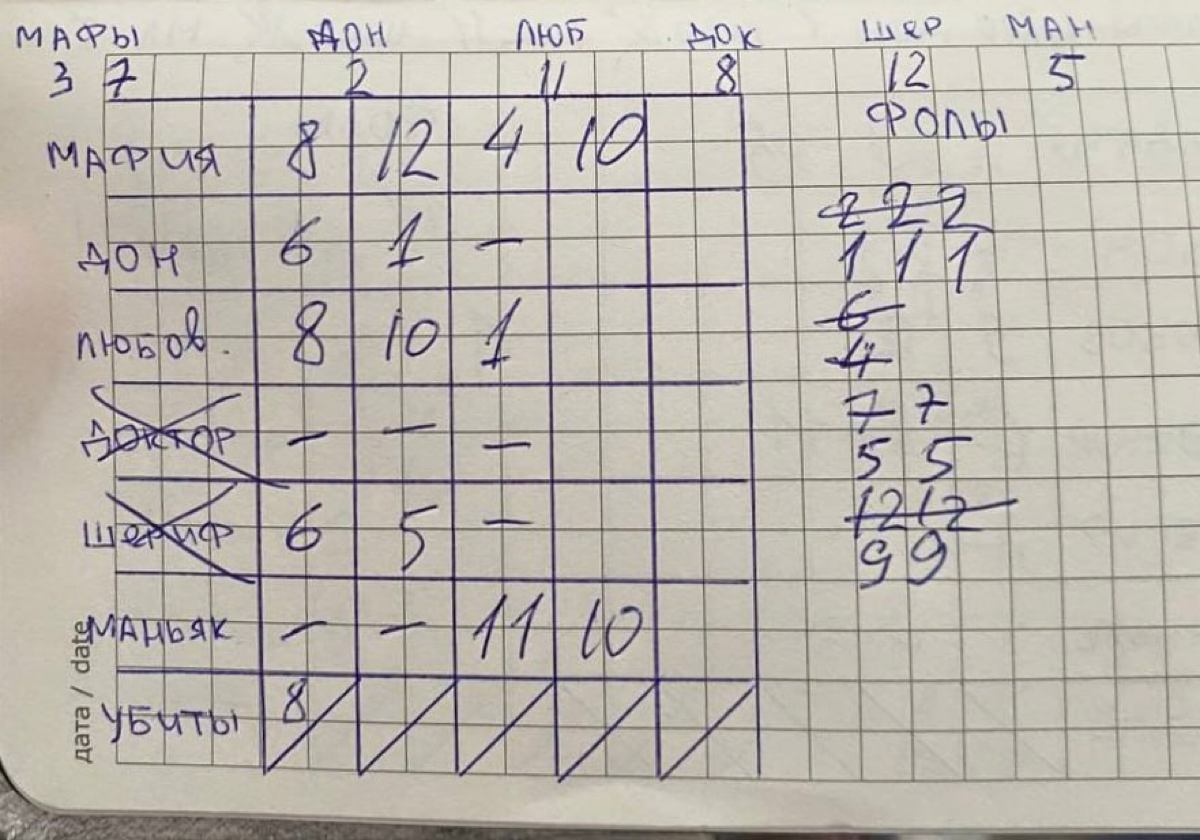 МАФЫ ДОН ЛЮБ ДОК ШЕР МАН
3 7 2 11 8 12 5
ФОЛЫ
МАФИЯ 8 12 4 10
2 2 2
ДОН 6 1 –
1 1 1
6
ЛЮБОВ. 8 10 1
4
7 7
ДОКТОР – – –
5 5
12 12
ШЕРИФ 6 5 –
9 9
МАНЬЯК – – 11 10
УБИТЫ 8
дата / date